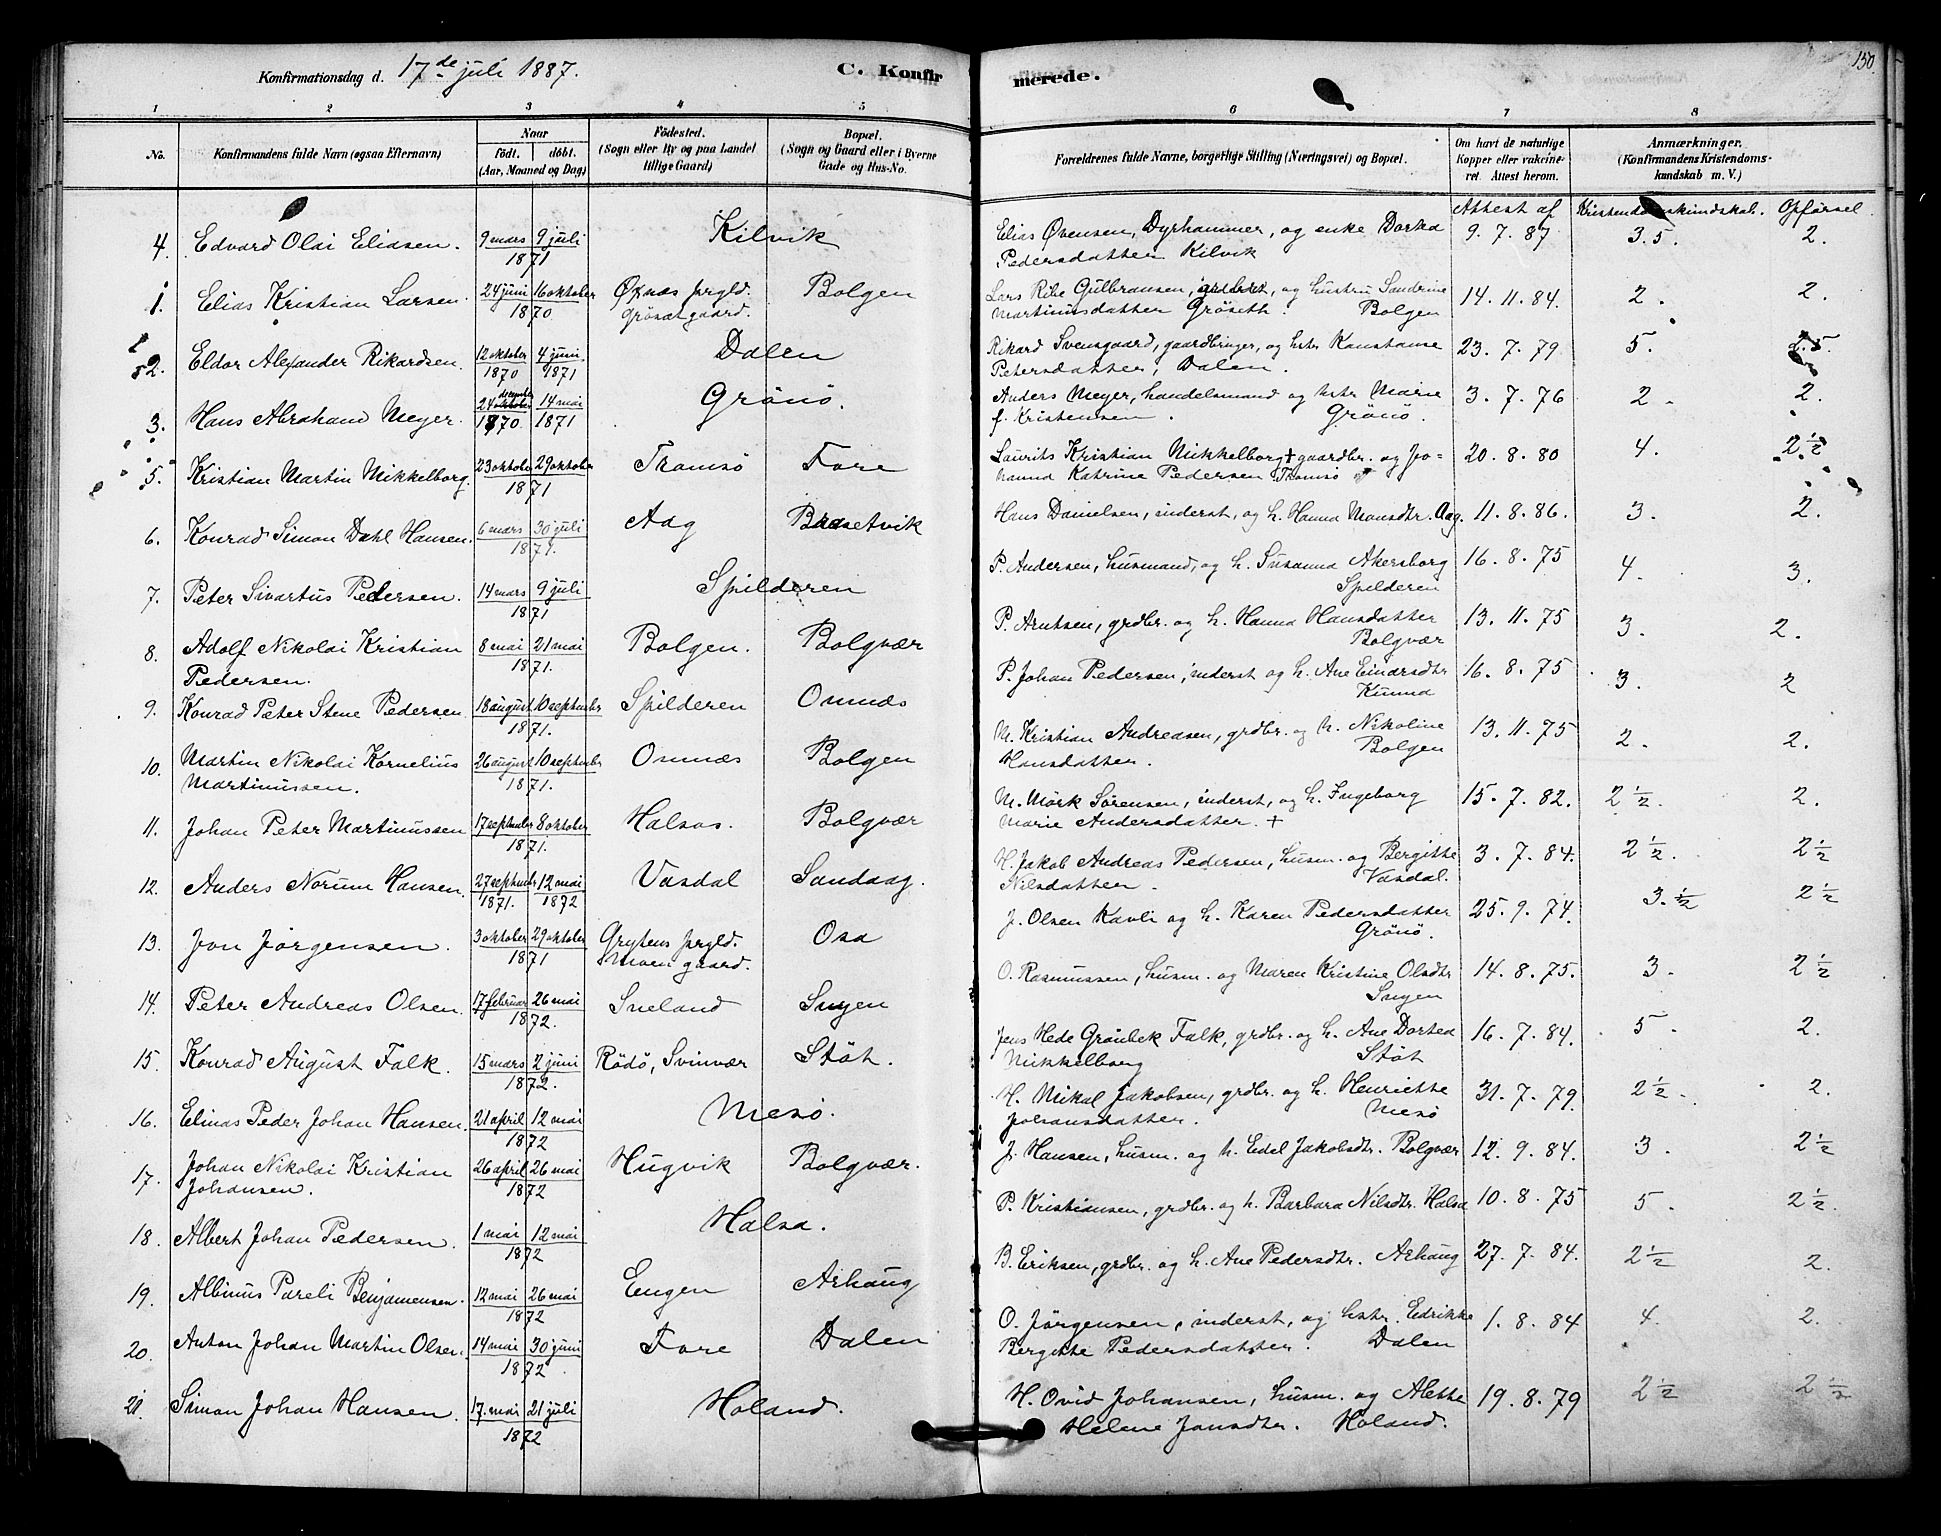 Konfirmationsdag d. 17de juli 1887. C. Konfirmerede. 150.
1 2 3 4 5 6 7 8
No. Konfirmandens fulde Navn (ogsaa Efternavn) Naar født. døbt. (Aar, Maaned og Dag) Fødested. (Sogn eller By og paa Landet tillige Gaard) Bopæl. (Sogn og Gaard eller i Byerne Gade og Hus-No. Forældrenes fulde Navne, borgerlige Stilling (Næringsvei) og Bopæl. Om havt de naturlige Kopper eller vakcineret. Attest herom. Anmærkninger. (Konfirmandens Kristendomskundskab m. V.)
Attest af Kristendomskundskab. Opførsel.
4. Edvard Olai Eliasen. 9 mars 9 juli 1871 Kilvik Elias Øvensen, Dyrhammer, og enke Dorka Pedersdatter Kilvik 9. 7. 87 3.5. 2.
1. Elias Kristian Larsen. 24 juni 16 oktober 1870 Øxnæs prgld. Grøsæt gaard. Bolgen Lars Ribe Gulbransen, inderst, og hustru Sandrine Martinusdatter Grøseth. Bolgen 14. 11. 84. 2. 2.
2. Eldor Alexander Rikardsen. 12 oktober 1870 4 juni 1871 Dalen Rikard Svensgaard, gaardbruger, og hstr Konstanse Petersdatter, Dalen. 23. 7. 79 5. 2.5.
3. Hans Abraham Meyer. 24 december 1870. 14 mai 1871 Grönö. Anders Meyer, handelsmand og hstr Marie f. Kristensen. Grönö. 3. 7. 76 2. 2.
5. Kristian Martin Mikkelborg. 23 oktober 29 oktober 1871 Tromsö Fore Laurits Kristian Mikkelborg + gaardbr. og Johanna Katrine Pedersen Tromsö 20. 8. 80 4. 2 ½
6. Konrad Simon Dahl Hansen. 6 mars 30 juli 1871. Aag Bassetvik Hans Danielsen, inderst, og h. Hanna Monsdtr. Aag. 11. 8. 86. 3. 2.
7. Peter Sivartus Pedersen. 14 mars 9 juli 1871 Spilderen P. Andersen, husmand, og h. Susanna Akersborg Spilderen 16. 8. 75 4. 3.
8. Adolf Nikolai Kristian Pedersen. 8 mai 21 mai 1871. Bolgen. Bolgvær P. Arntsen, grdbr. og h. Hanna Hansdatter Bolgvær 13. 11. 75 3. 2.
9. Konrad Peter Stene Pedersen. 18 august 10 september 1871. Spilderen Ornnæs P. Johan Pedersen, inderst og h. Ane Einarsdtr Kunna 16. 8. 75 3. 2
10. Martin Nikolai Kornelius Martinussen. 26 august 10 september 1871. Ornnæs Bolgen M. Kristian Andreasen, grdbr. og h. Nikoline Hansdatter. Bolgen 13. 11. 75 2. 2.
11. Johan Peter Martinussen 17 september 8 oktober 1871. Halsos. Bolgvær M. Mørk Sørensen, inderst, og h. Ingeborg Marie Andersdatter. + 15. 7. 82. 2 ½. 2.
12. Anders Norum Hansen. 27 september 1871. 12 mai 1872 Vasdal Sandaag. H. Jakob Andreas Pedersen, husm. og Bergitte Nilsdatter. Vasdal. 3. 7. 84. 2 ½. 2 ½
13. Jon Jørgensen. 3 oktober 29 oktober 1871 Grytens prgld. Moen gaard. Osa J. Olsen Kavli og h. Karen Pedersdatter Grönö. 25. 9. 74. 3. ½ 2 ½
14. Peter Andreas Olsen. 17 februar 26 mai 1872. Sneland Sugen O. Rasmussen, husm. og Maren Kristine Olsdtr Sugen 14. 8. 75. 3. 2 ½
15. Konrad August Falk. 15 mars 2 juni 1872. Rödö, Svinvær Stöt. Jens Hede Grønbek Falk, grdbr. og h. Ane Dortea Mikkelborg Stöt 16. 7. 84. 5. 2.
16. Elinas Peder Johan Hansen. 21 april 12 mai 1872 Mesö. H. Mikal Jakobsen, grdbr. og h. Henriette Johansdatter. Mesö 31. 7. 79. 2 ½. 2.
17. Johan Nikolai Kristian Johansen. 26 april 26 mai 1872 Hugvik Bolgvær. J. Hansen, husm. og h. Edel Jakobsdtr. Bolgvær 12. 9. 84. 3. 2 ½
18. Albert Johan Pedersen. 1 mai 12 mai 1872 Halsa. P. Kristiansen, grdbr. og h. Barbara Nilsdtr. Halsa 10. 8. 75 5. 2 ½.
19. Albinus Pareli Benjamensen. 12 mai 26 mai 1872 Engen Arhaug B. Eriksen, grdbr. og h. Ane Pedersdtr. Arhaug 27. 7. 84. 2 ½ 2.
20. Anton Johan Martin Olsen. 14 mai 30 juni 1872 Fore Dalen O. Jørgensen, inderst, og hstr. Edrikke Bergitte Pedersdatter. Dalen 1. 8. 84 4. 2.
21. Simon Johan Hansen. 17 mai 21 juli 1872 Holand. H. Ovid Johansen, husm. og Alette Helene Jonsdtr. Holand. 19. 8. 79 2 ½ 2 ½